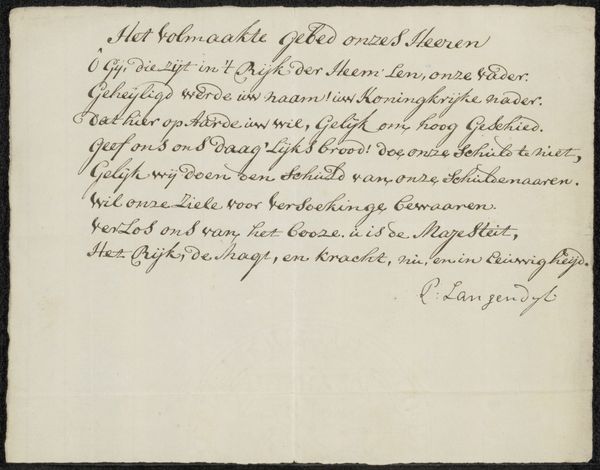 Het volmaakte gebed onzes Heeren
ô Gy, die zijt in 't Rijk der Heem'len, onze vader.
Geheyligd werde uw naam! uw Koningkrijke nader.
dat hier op Aarde uw wil, Gelijk om hoog Geschied.
Geef ons ons daag'lijks brood! doe onze Schuld te niet,
Gelijk wij doen den Schuld van onze Schuldenaaren.
wil onze Ziele voor versoekinge bewaaren.
verLos ons van het booze. u is de Majesteit,
Het Rijk, de Magt, en kracht, nu, en in Eeuwigheijd.
P: Langendyk